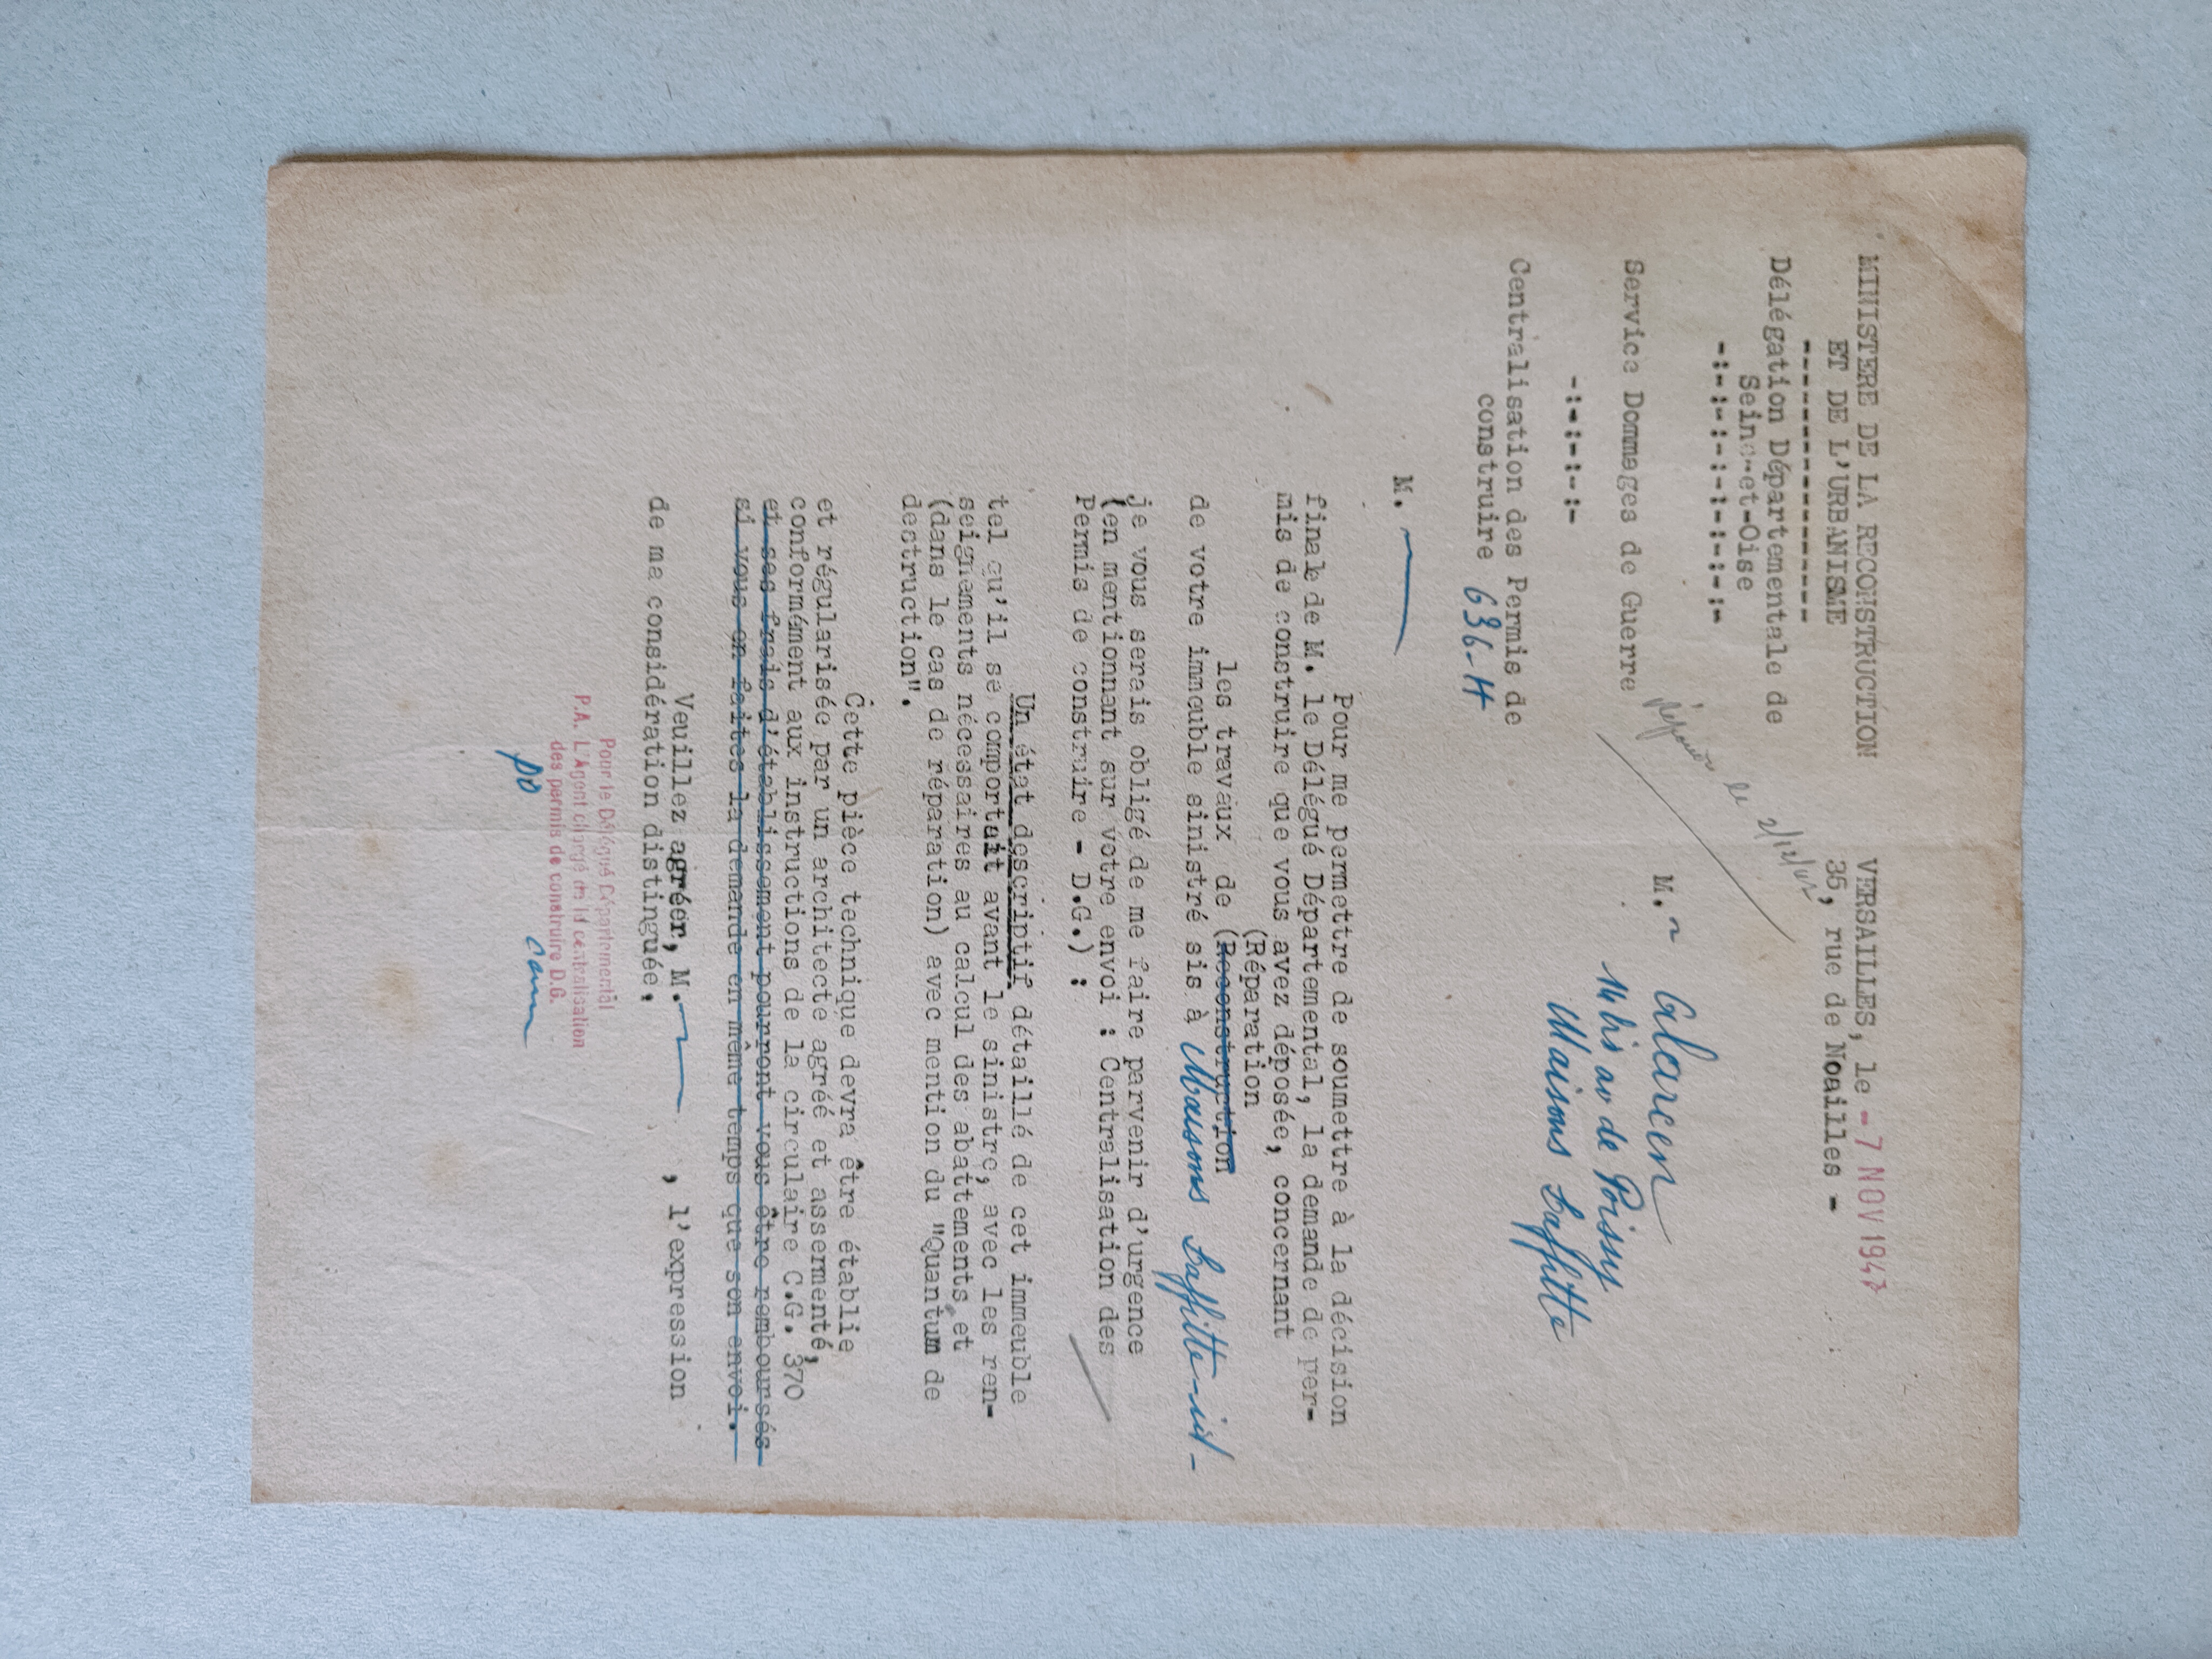 MINISTERE DE LA RECONSTRUCTION
ET DE L'URBANISME
----------------
Délégation Départementale de
Seine-et-Oise
-:-:-:-:-:-:-:-:-
VERSAILLES, le -7 NOV 1947
35, rue de Noailles -
le 2/12/47
Service Dommages de Guerre
-:-:-:-:-
M. Alarcen
14 bis av de Poissy
Maisons Laffitte
Centralisation des Permis de
construire 636-H
M.
Pour me permettre de soumettre à la décision
finale de M. le Délégué Départemental, la demande de per-
mis de construire que vous avez déposée, concernant
(Réparation
les travaux de (Reconstruction
de votre immeuble sinistré sis à Maisons Laffitte-id-
je vous serais obligé de me faire parvenir d'urgence
(en mentionnant sur votre envoi : Centralisation des
Permis de construire - D.G.) :
Un état descriptif détaillé de cet immeuble
tel qu'il se comportait avant le sinistre, avec les ren-
seignements nécessaires au calcul des abattements et
(dans le cas de réparation) avec mention du "Quantum de
destruction".
Cette pièce technique devra être établie
et régularisée par un architecte agréé et assermenté,
conformément aux instructions de la circulaire C.G. 370
et ses frais d'établissement pourront vous être remboursés
si vous en faites la demande en même temps que son envoi.
Veuillez agréer, M. , l'expression
de ma considération distinguée.
Pour le Délégué Départemental
P.A. L'Agent chargé de la centralisation
des permis de construire D.G.